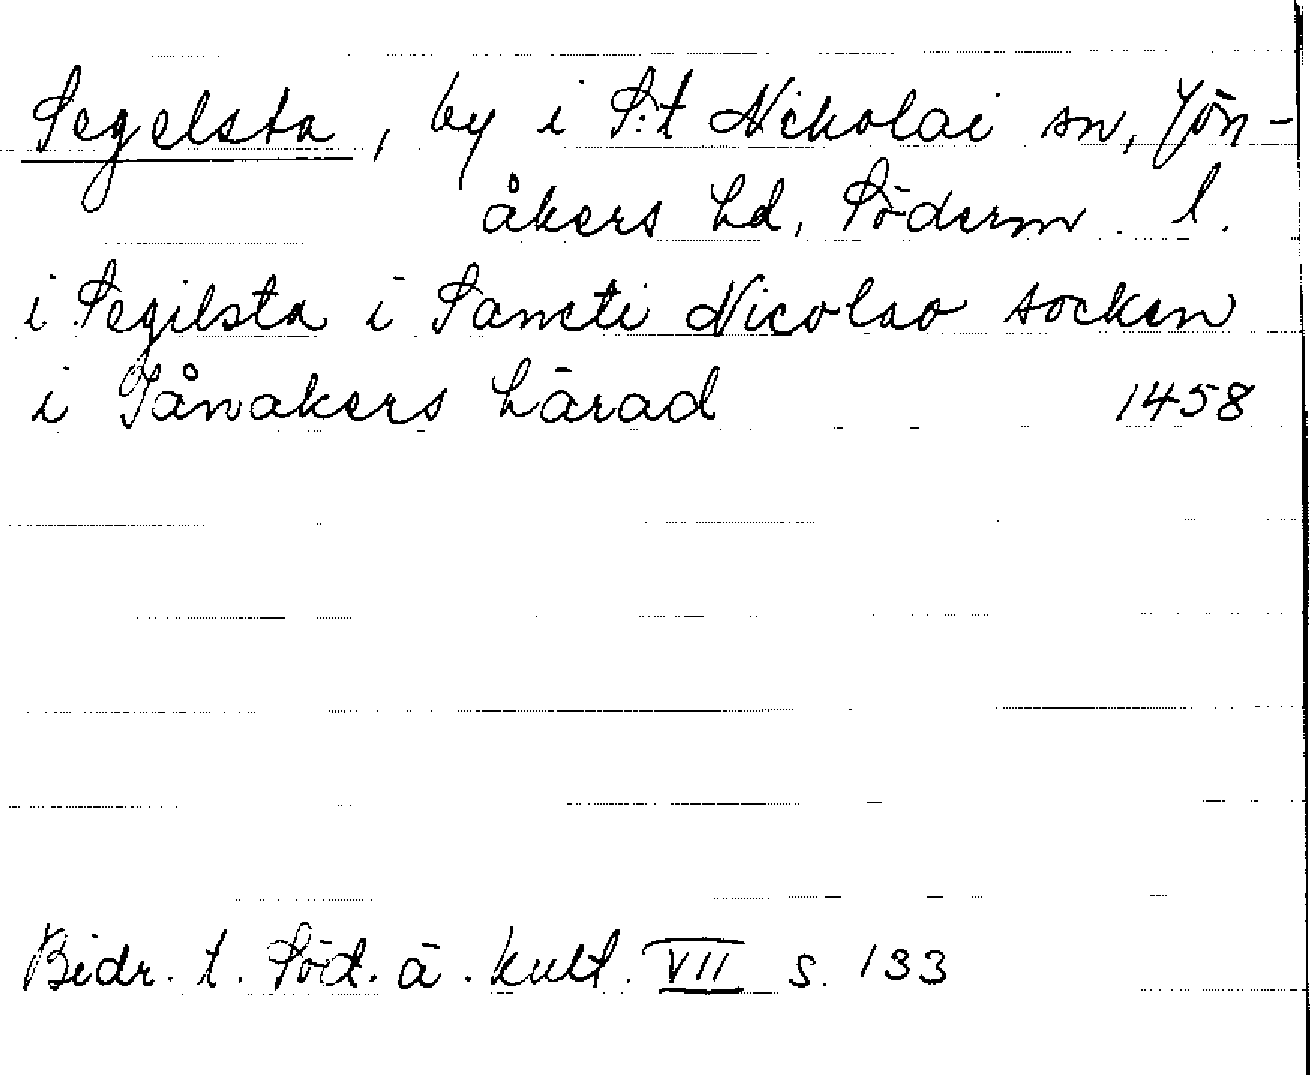 Segelsta, by i S:t Nikolai sn, Jön-
åkers hd, Söderm. l.
i Segilsta i Sancti Nicolao socken
i Jånakers härad 1458
Bidr. t. Söd. ä. kult. VII s. 133